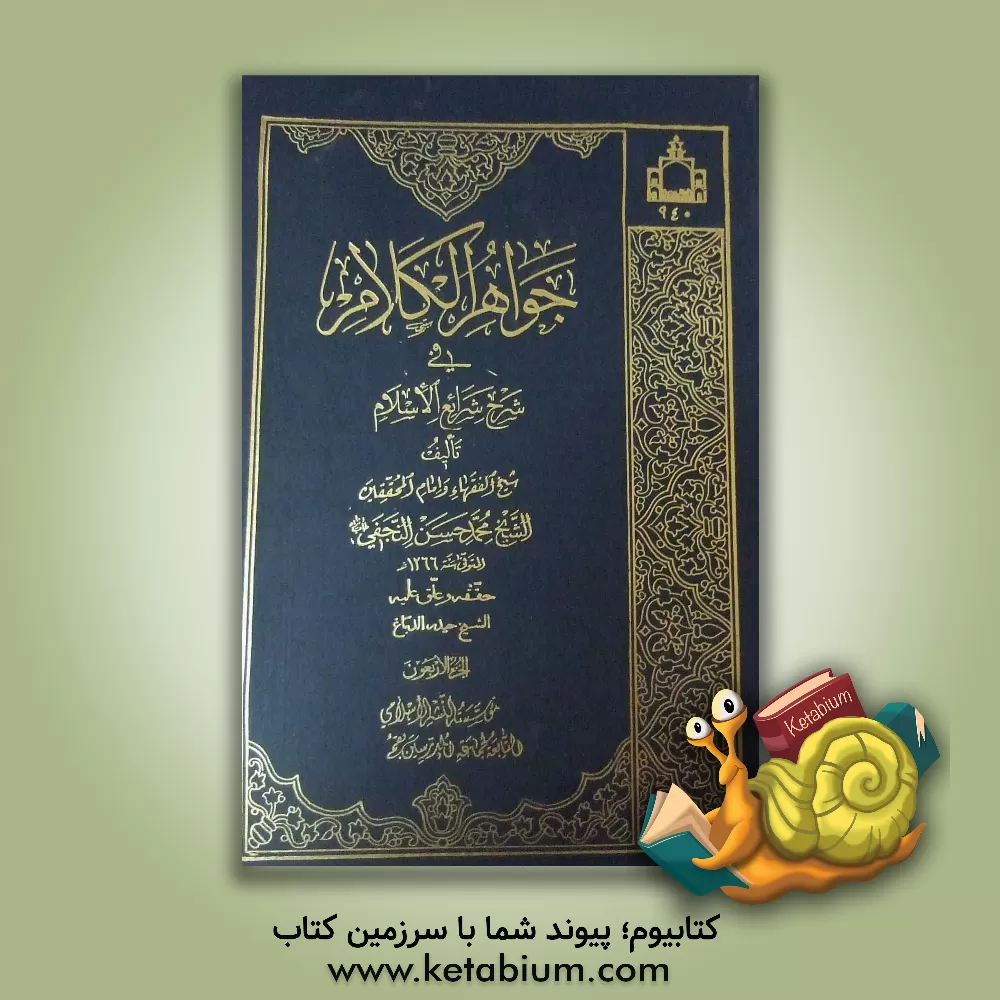 ٩٤٠
جَوَاهِرُ الْكَلَامِ
في
شَرْحِ شَرَائِعِ الْإِسْلَامِ
تَأْلِيفُ
شيخ الفقهاء وإمام المحققين
الشَّيْخ مُحَمَّد حَسَن النَّجَفِي
المتوفى سنة ١٢٦٦هـ
حققه وعلق عليه
الشيخ حيدر الدباغ
الجزء الأربعون
مؤسسة النشر الإسلامي
التابعة لجماعة المدرسين بقم
Ketabium
کتابیوم؛ پیوند شما با سرزمین کتاب
www.ketabium.com